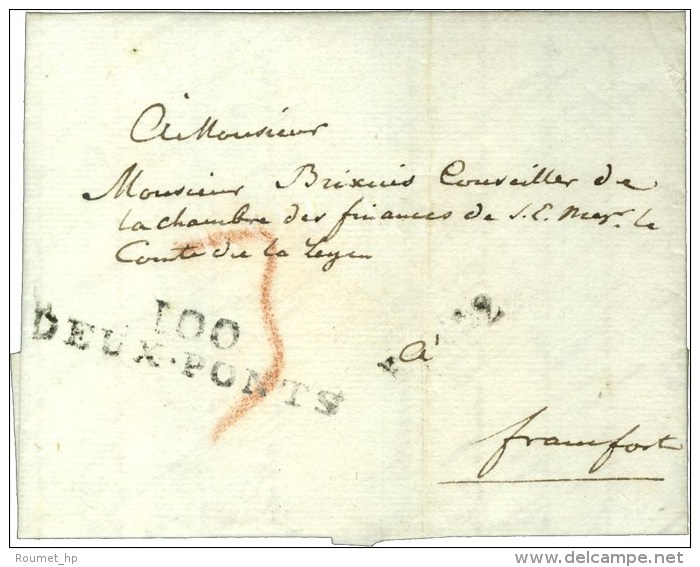 A Monsieur
Monsieur Brixius Conseiller de
la chambre des finances de S. E. Mgr. le
Comte de la Leyen
3
100
DEUX·PONTS
à
francfort
Roumet_hp
www.delcampe.net